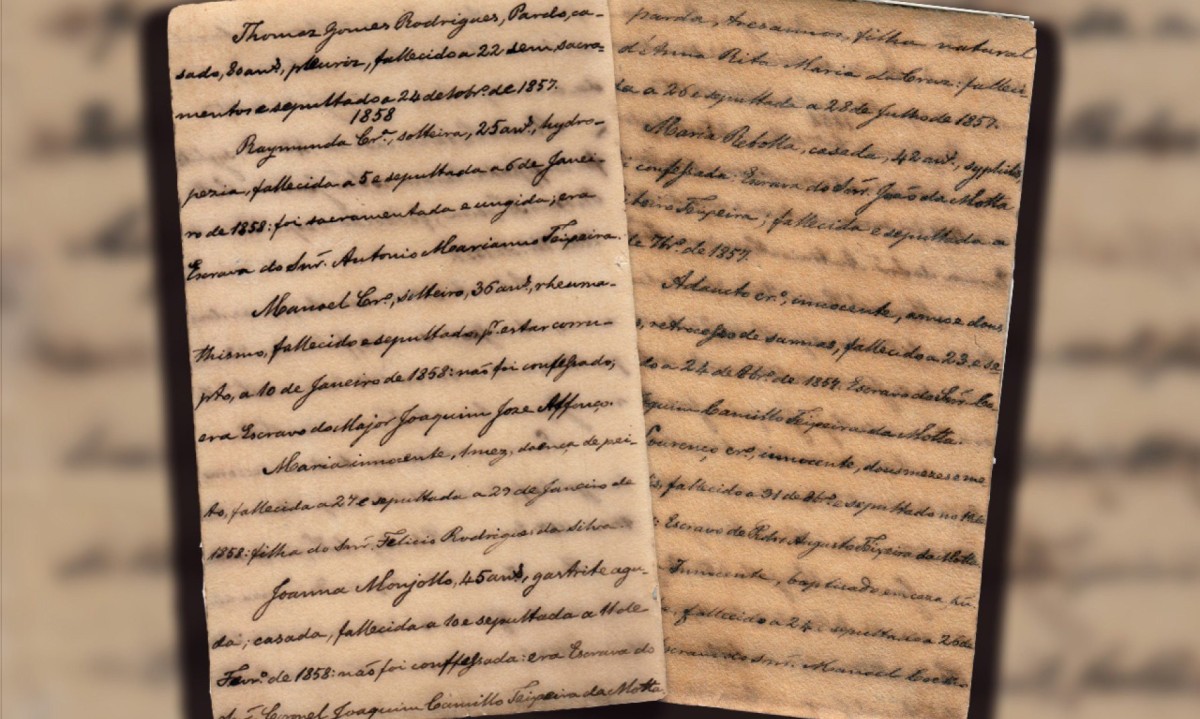 Thomaz Gomes Rodrigues, Pardo, ca-
sado, 80 ann.s, pleuriz, fallecido a 22 sem sacra-
mentos e sepultado a 24 de 1857.
1858
Raymunda Cr.ª, solteira, 25 ann.s, hydro-
pezia, fallecida a 5 e sepultada a 6 de Janei-
ro de 1858: foi sacramentada e ungida; era
Escrava do Snr. Antonio Marianno Teixeira.
Manoel Cr.º, solteiro, 36 ann.s, rheuma-
thismo, fallecido e sepultado, p.r estar corru-
pto, a 10 de Janeiro de 1858: não foi confessado;
era Escravo do Major Joaquim Jose Affonço.
Maria innocente, 1 mez, doença de pei-
to, fallecida a 27 e sepultada a 29 de Janeiro de
1858: filha do Snr. Felicio Rodrigues da Silva
Joanna Monjollo, 45 ann.s, gastrite agu-
da; casada, fallecida a 10 e sepultada a 11 de
Fevr.º de 1858: não foi conffessada: era Escrava do
Coronel Joaquim Camillo Teixeira da Motta.
parda, tres annos, filha natural
d'Anna Rita Maria da Cruz: falleci
da a 26 e sepultada a 28 de Julho de 1857.
Maria Rebolla, casada, 42 ann.s, syphilis,
confessada: Escrava do Snr. João da Motta
Teixeira; fallecida e sepultada a
de 7br.º de 1857.
Adaucto cr.º, innocente, annos e dous
retrocesso de sarnas, fallecido a 23 e se
do a 24 de 8br.º de 1857. Escravo do Snr. Jo
quim Camillo Teixeira da Motta.
Lourenço cr.º, innocente, dous mezes e me
fallecido a 31 de 8br.º e sepultado no
Escravo de Pedro Augusto Teixeira da Motta
Innocente, baptizado em casa,
fallecido a 24 e sepultado a 25 de
Snr. Manoel